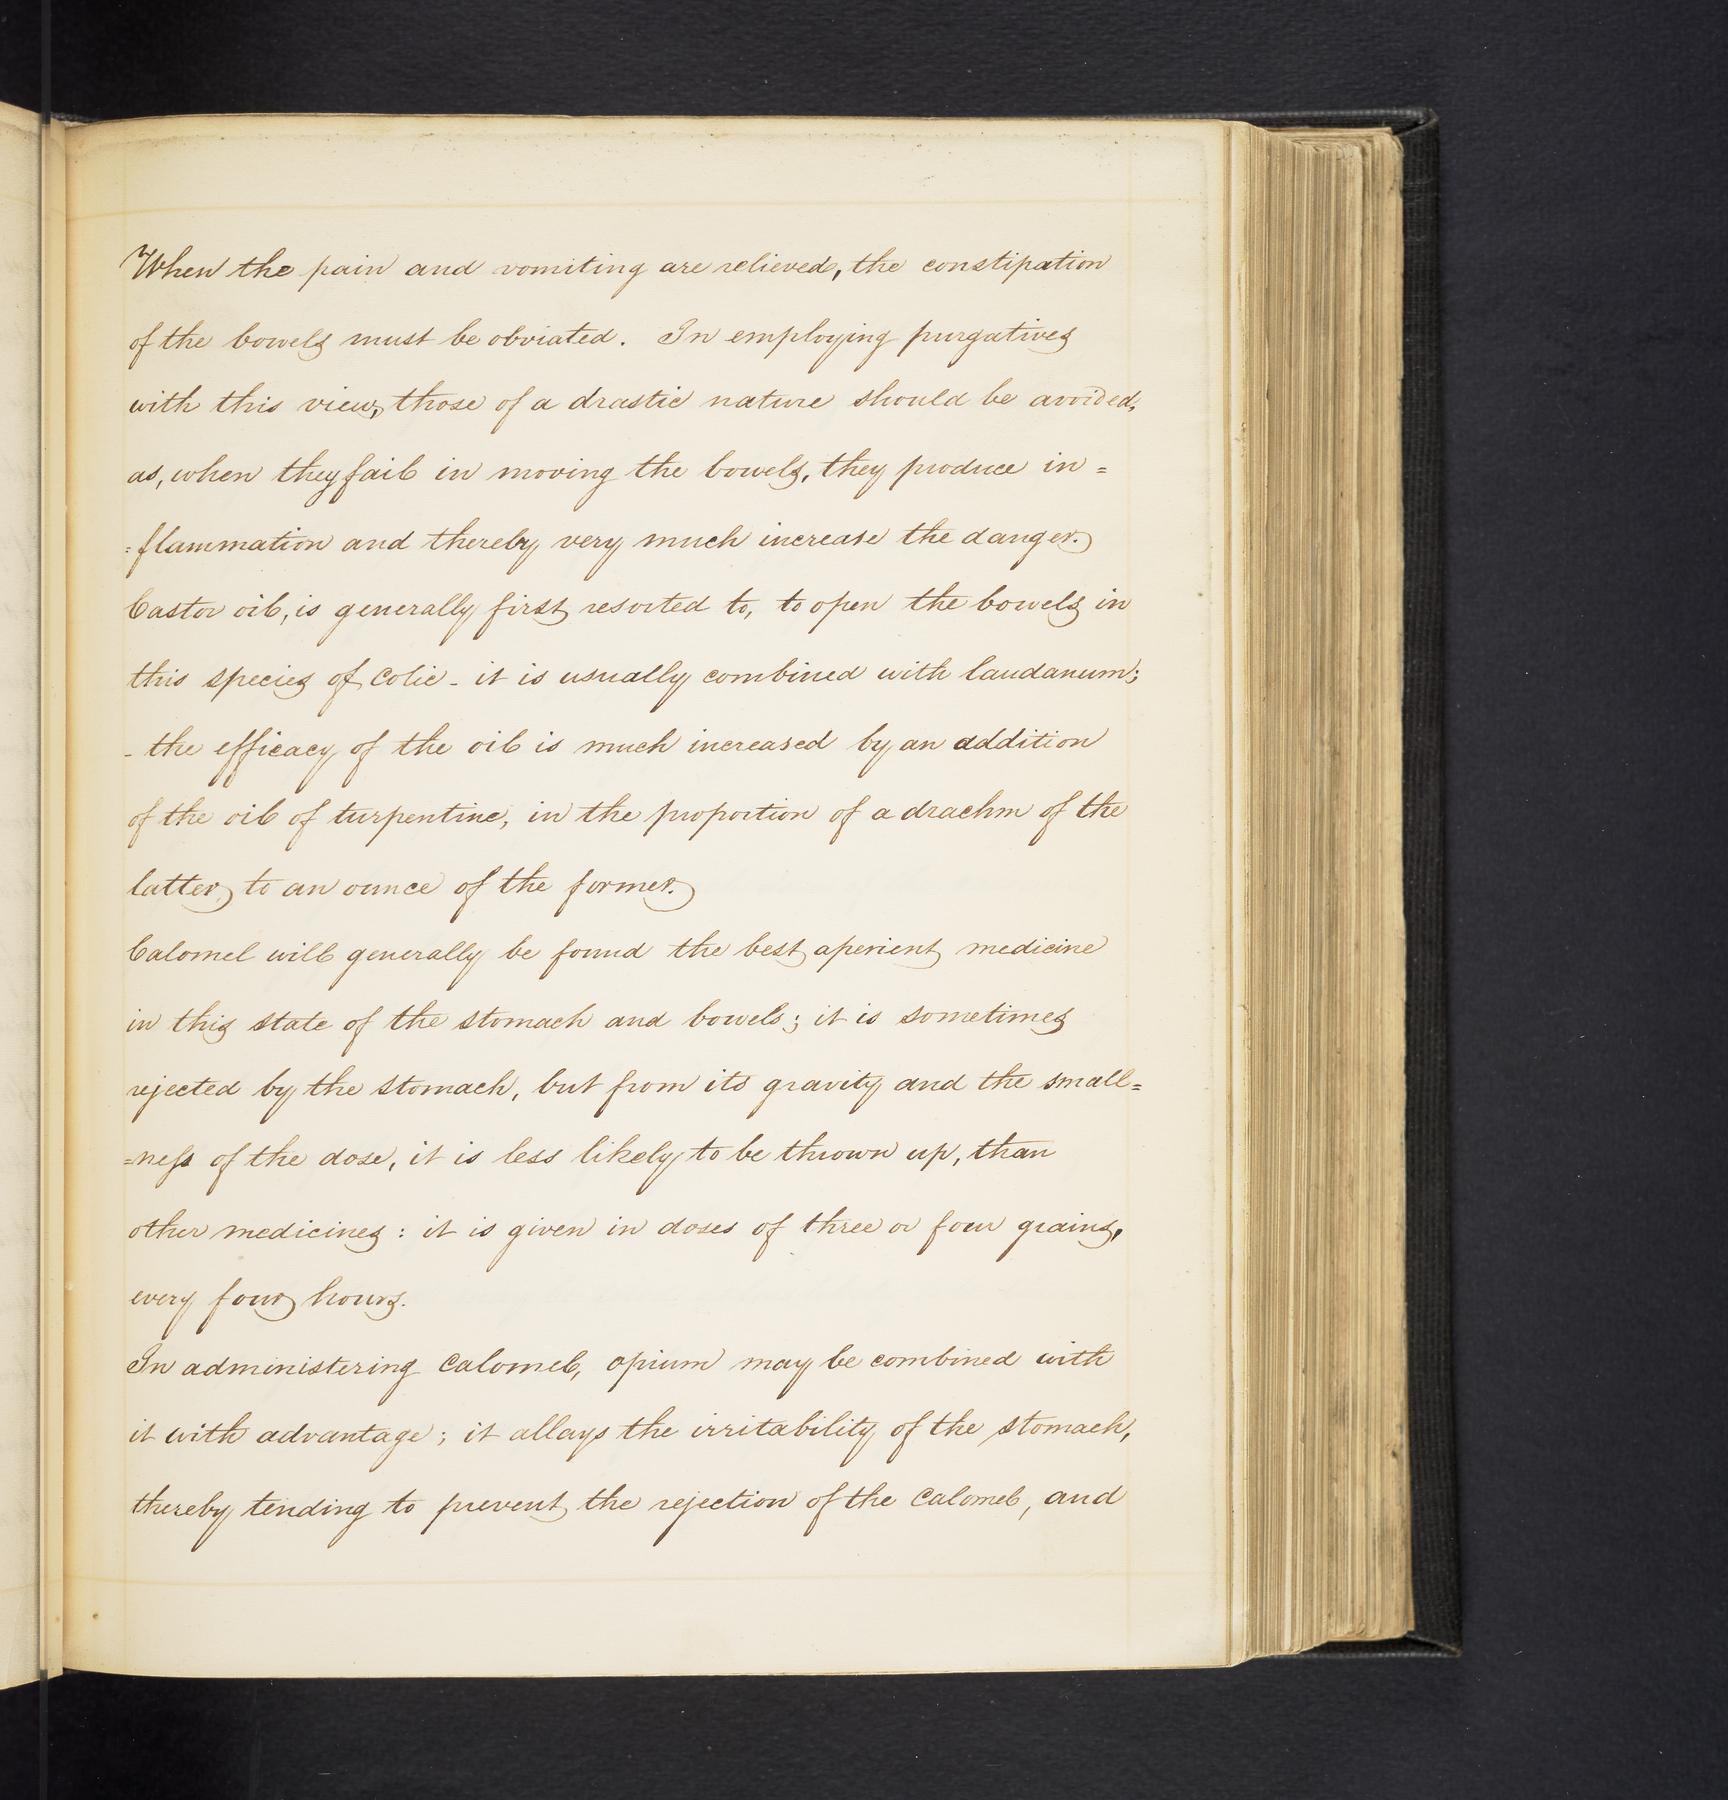 When the pain and vomiting are relieved, the constipation
of the bowels must be obviated. In employing purgatives
with this view, those of a drastic nature should be avoided,
as, when they fail in moving the bowels, they produce in=
=flammation and thereby very much increase the danger.
Castor oil, is generally first resorted to, to open the bowels in
this species of Colic - it is usually combined with laudanum;
- the efficacy of the oil is much increased by an addition
of the oil of turpentine, in the proportion of a drachm of the
latter, to an ounce of the former.
Calomel will generally be found the best aperient medicine
in this state of the stomach and bowels; it is sometimes
rejected by the stomach, but from its gravity and the small=
=neſs of the dose, it is less likely to be thrown up, than
other medicines: it is given in doses of three or four grains,
every four hours.
In administering Calomel, opium may be combined with
it with advantage; it allays the irritability of the stomach,
thereby tending to prevent the rejection of the Calomel, and